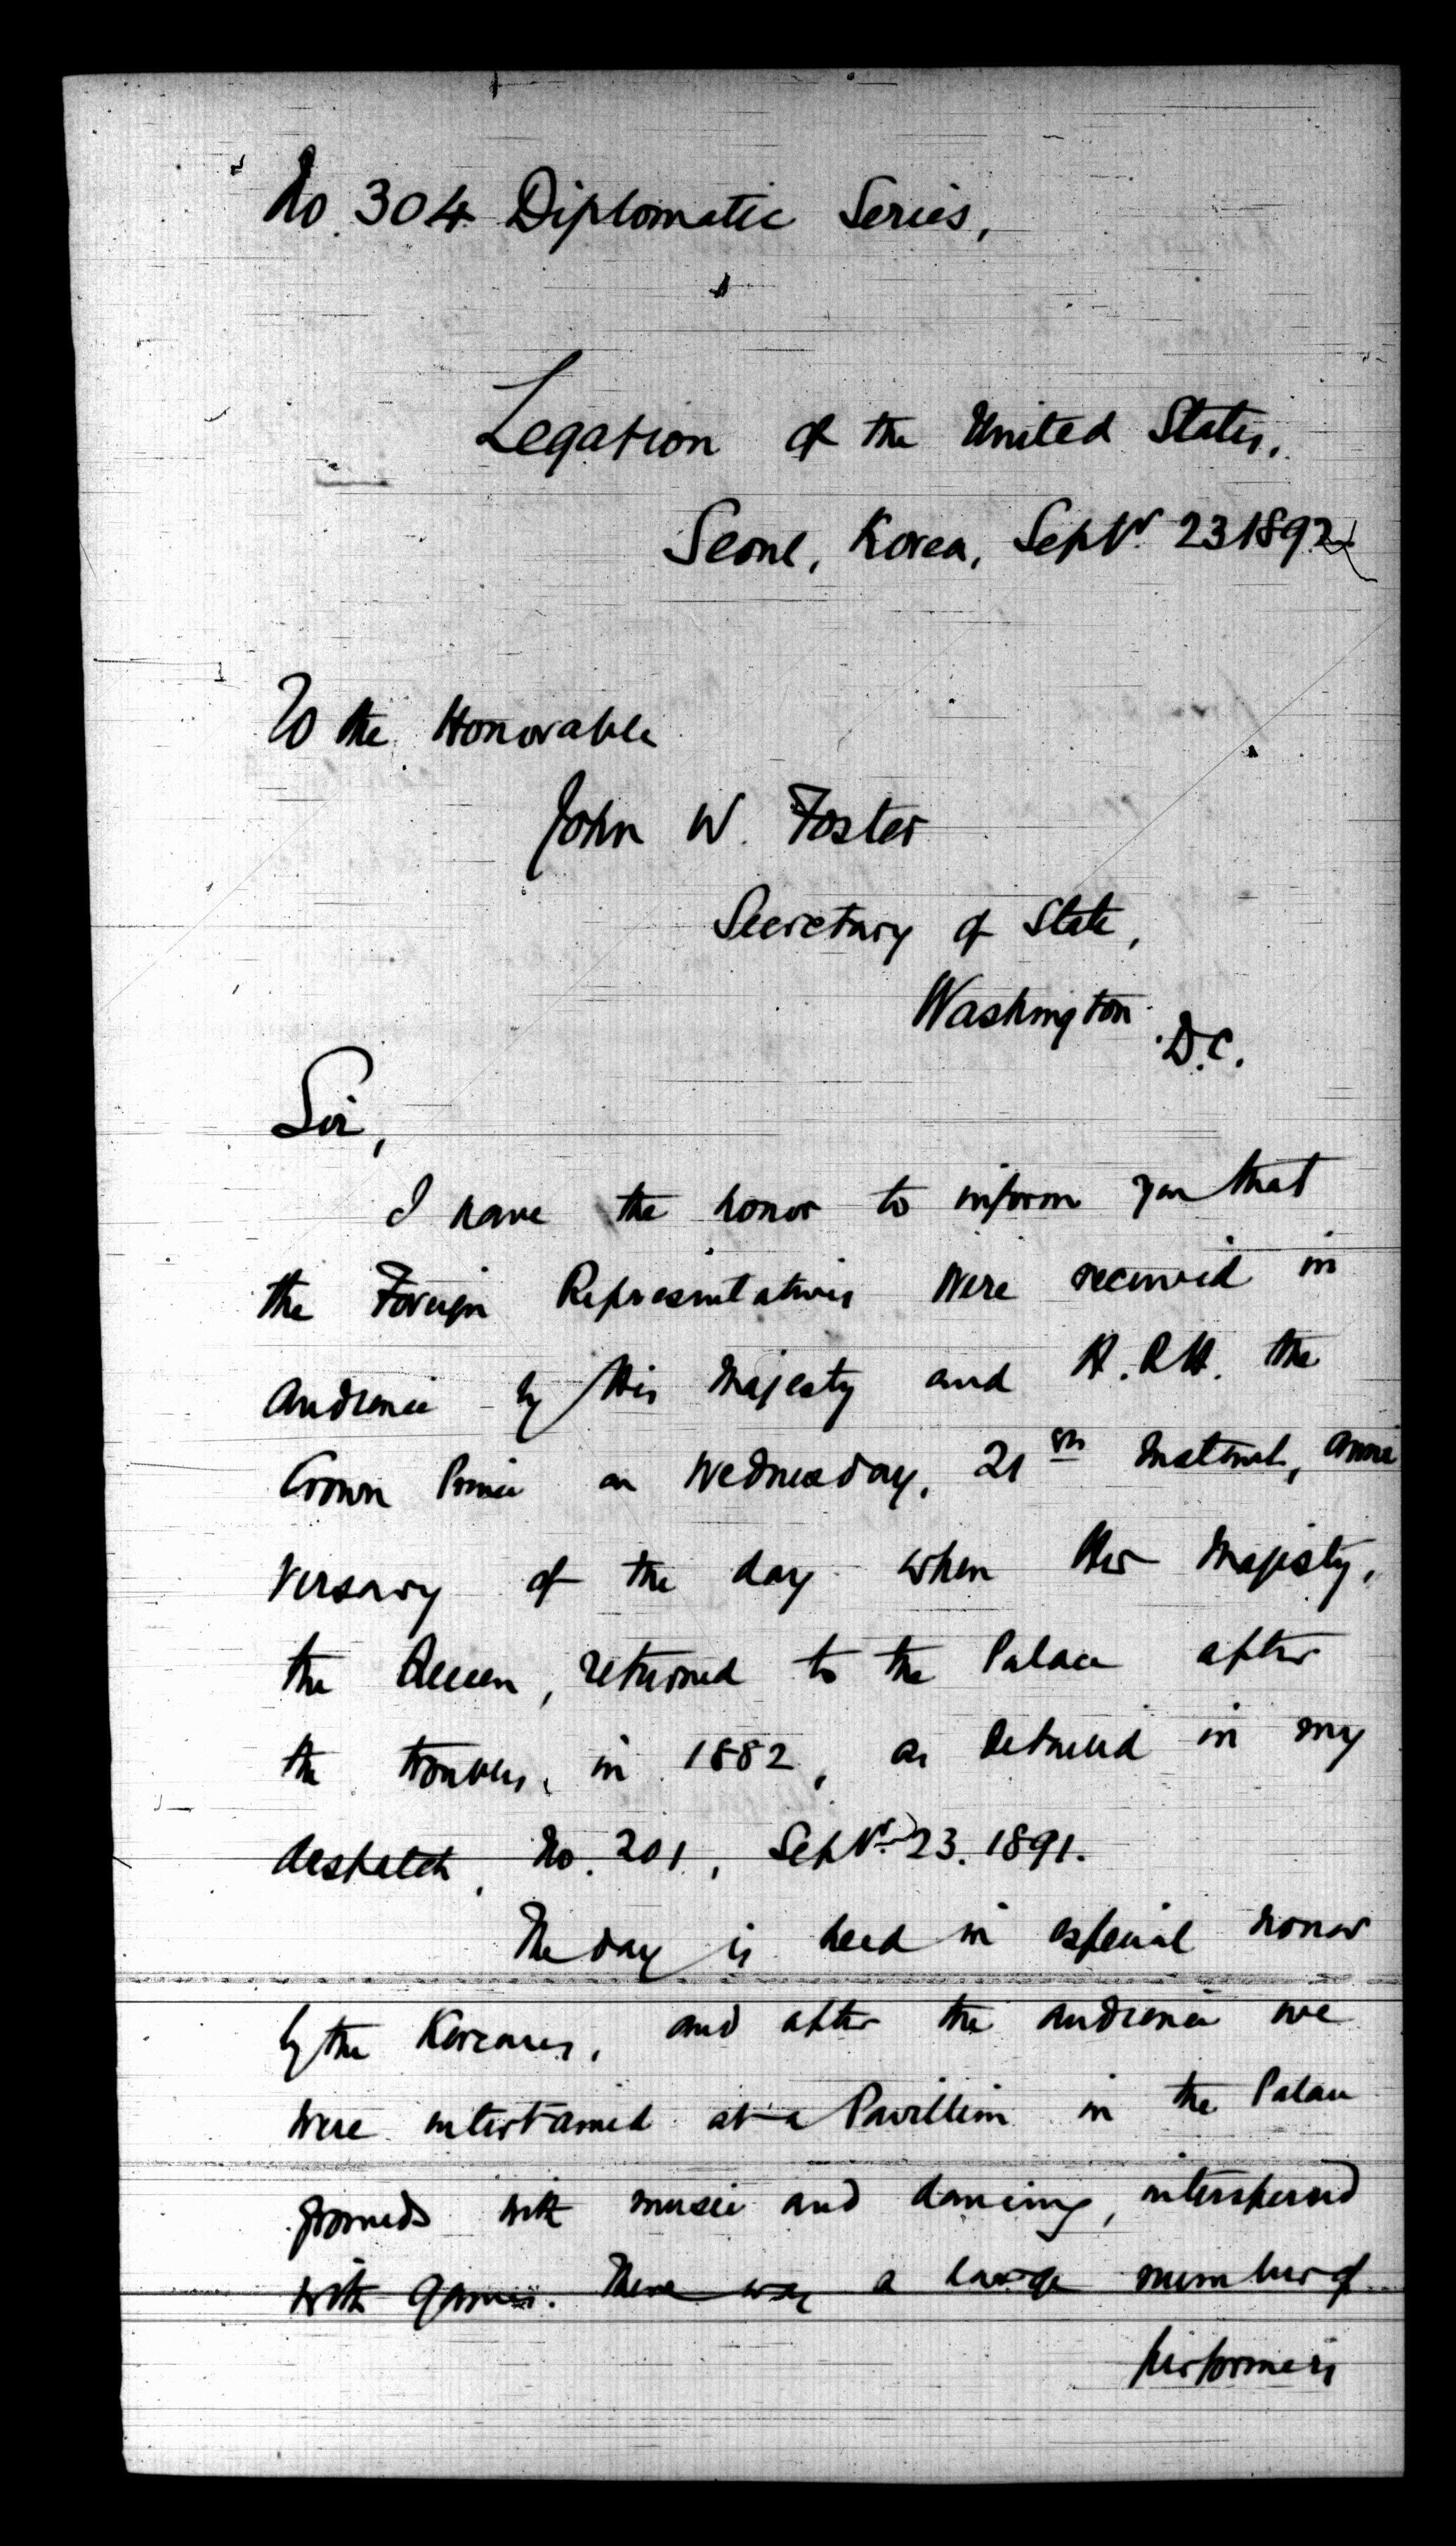 No. 304 Diplomatic Series,
Legation of the United States,
Seoul, Korea, Septr. 23 1892
To the Honorable
John W. Foster
Secretary of State,
Washington
D.C.
Sir,
I have the honor to inform you that
the Foreign Representatives were received in
Audience by His Majesty and H.R.H. the
Crown Prince on Wednesday, 21st Instant, anni
versary of the day when Her Majesty,
the Queen, returned to the Palace after
the troubles, in 1882, as detailed in my
despatch, No. 201, Septr. 23. 1891.
The day is held in especial honor
by the Koreans, and after the audience we
were entertained at a Pavillion in the Palace
grounds with music and dancing, interspersed
with games. There was a large number of
performers